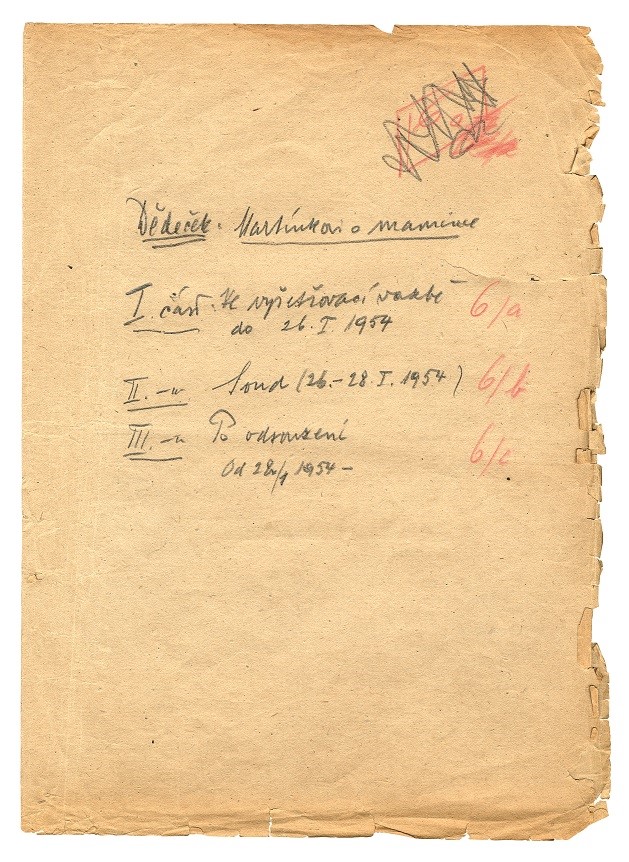 Dědeček: Martínkovi o mamince
I. část: Ve vyšetřovací vazbě 6/a
do 26. I. 1954
II. -"- Soud (26.-28. I. 1954) 6/b
III. -"- Po odsouzení 6/c
Od 28/1 1954 -